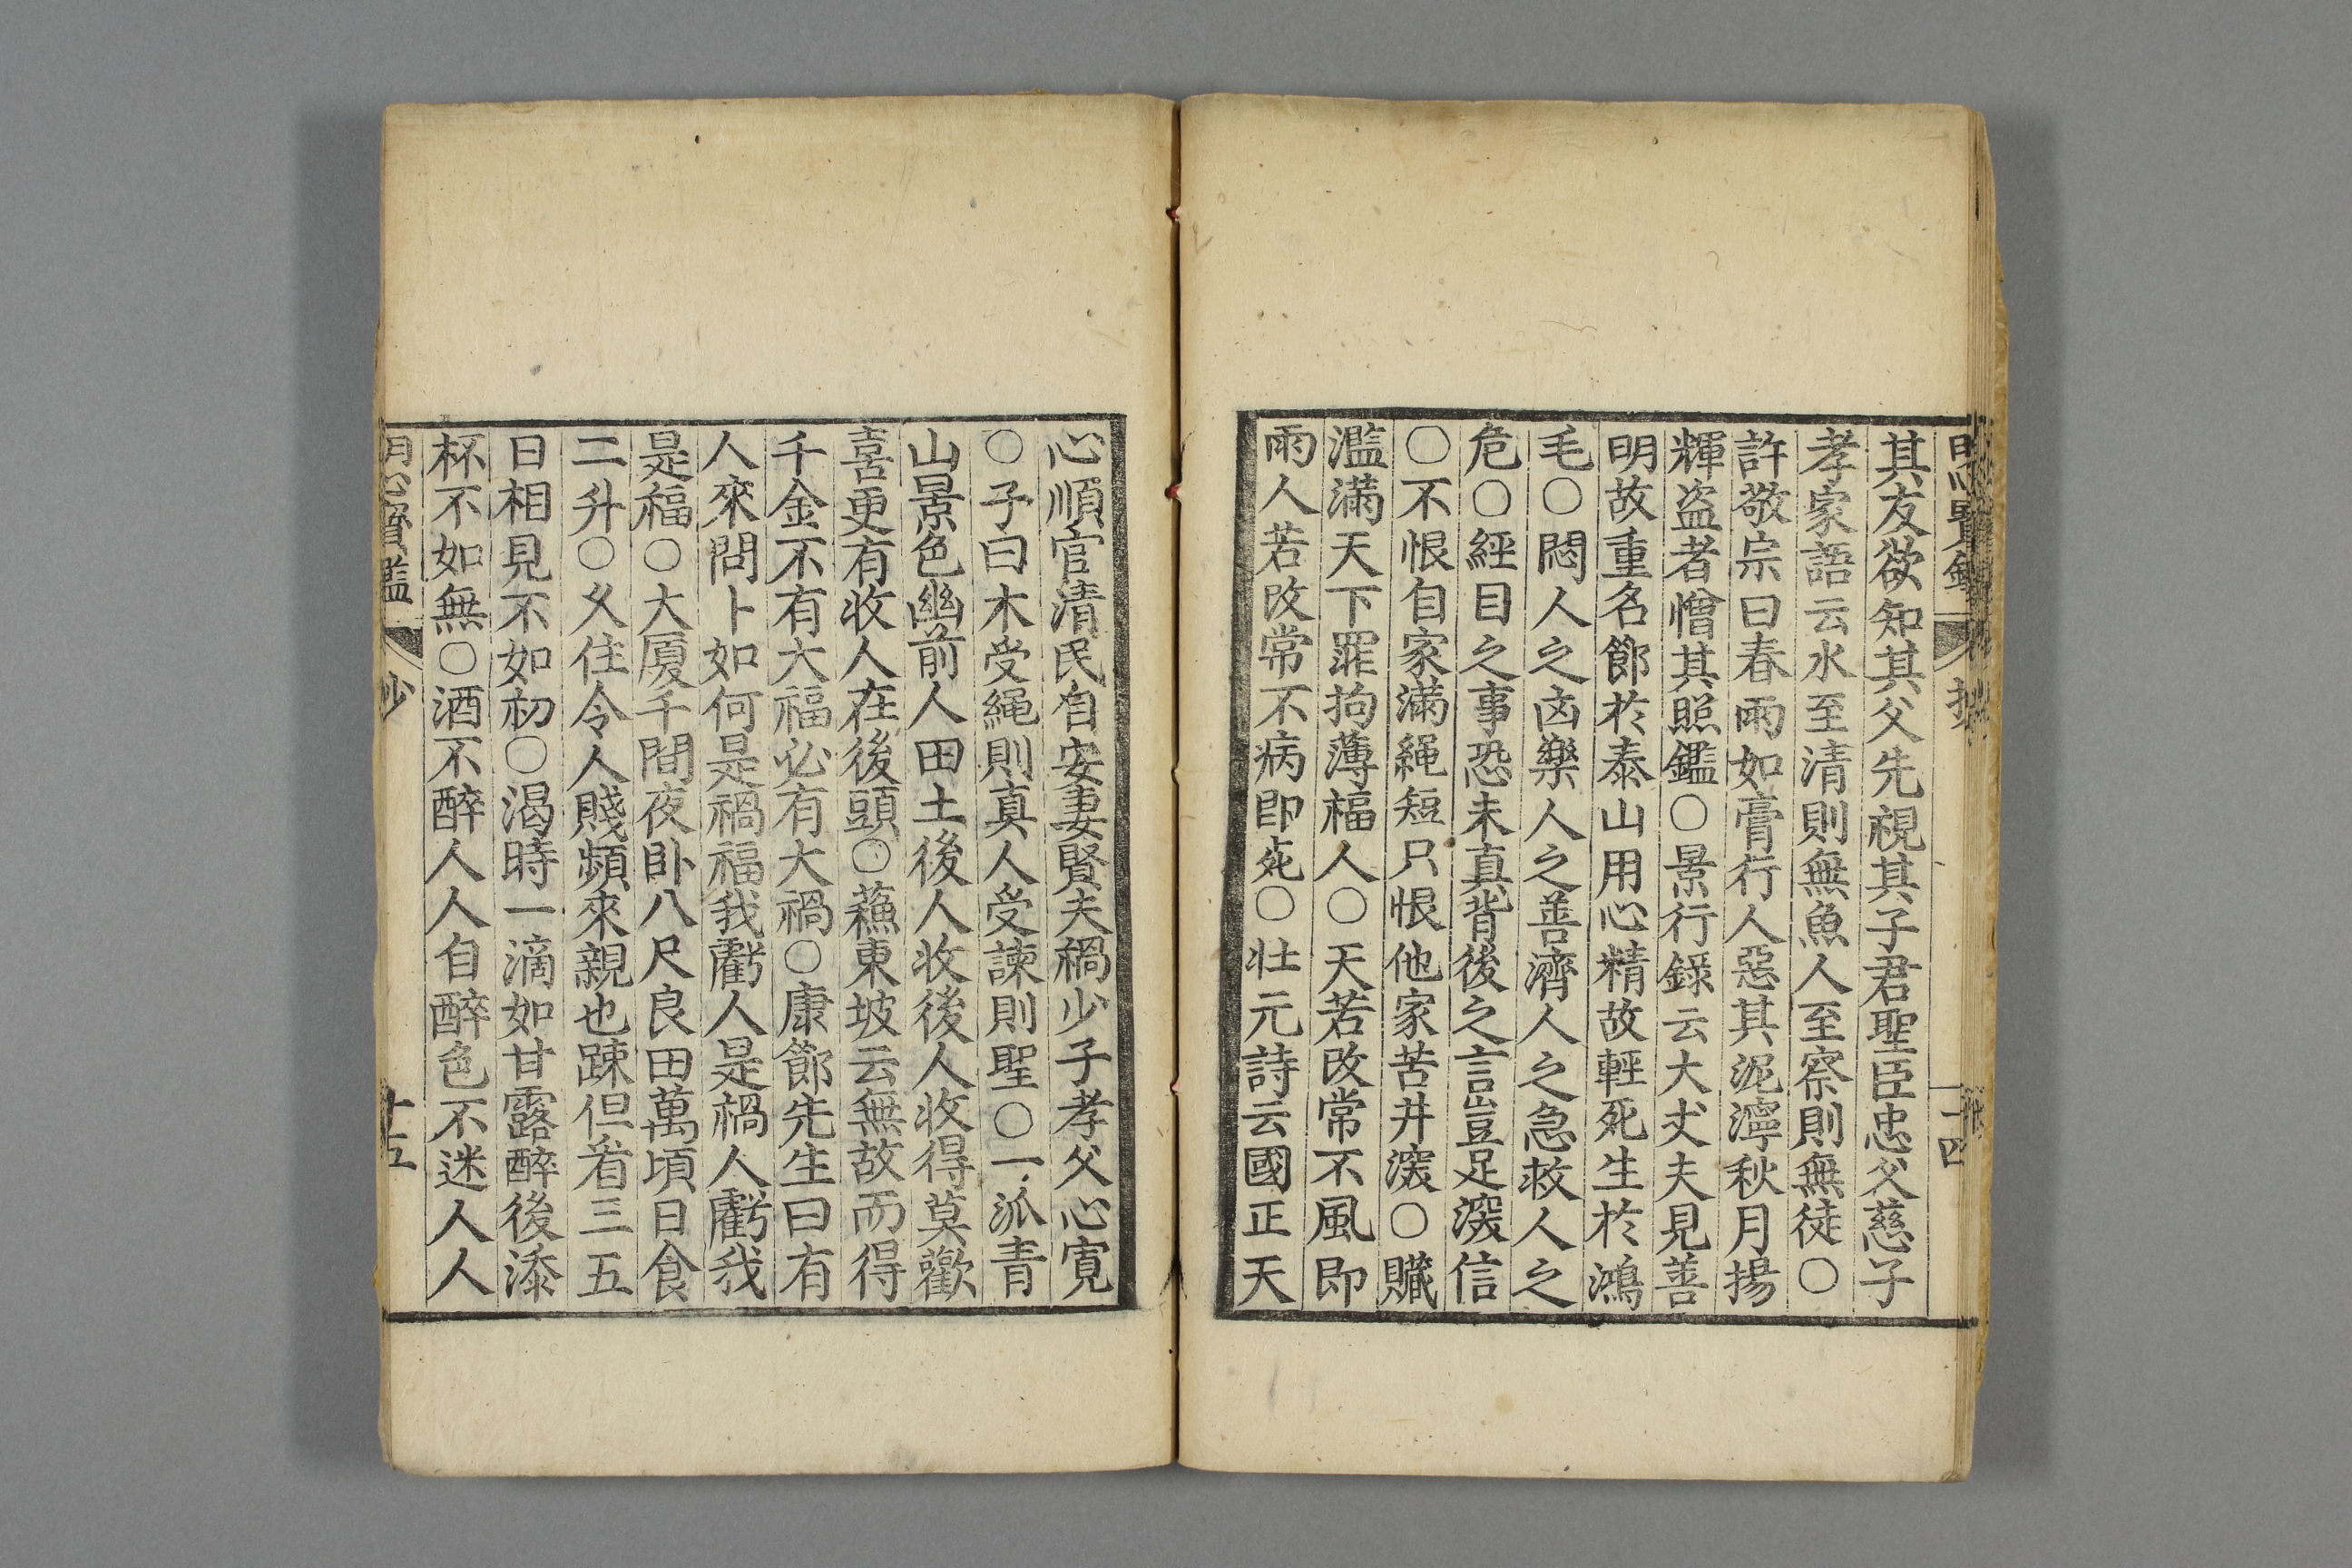 其友欲知其父先視其子君聖臣忠父慈子
孝家語云水至清則無魚人至察則無徒○
許敬宗曰春雨如膏行人惡其泥濘秋月揚
輝盗者憎其照鑑○景行錄云大丈夫見善
明故重名節於泰山用心精故輕死生於鴻
毛○悶人之凶樂人之善濟人之急救人之
危○經目之事恐未真背後之言豈足深信
○不恨自家滿繩短只恨他家苦井深○贓
濫滿天下罪拘薄福人○天若改常不風即
雨人若改常不病即死○壮元詩云國正天
心順官清民自安妻賢夫禍少子孝父心寬
○子曰木受繩則真人受諫則聖○一派青
山景色幽前人田土後人收後人收得莫歡
喜更有收人在後頭○蘓東坡云無故而得
千金不有大福必有大禍○康節先生曰有
人來問卜如何是禍福我虧人是禍人虧我
是福○大厦千間夜卧八尺良田萬頃日食
二升○久住令人賤頻來親也踈但看三五
日相見不如初○渴時一滴如甘露醉後添
杯不如無○酒不醉人人自醉色不迷人人
明心寶鑑 抄 十五